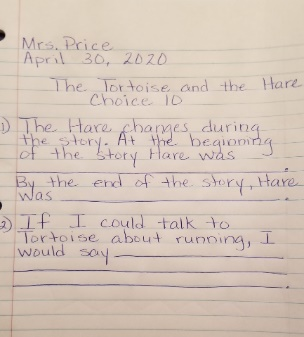 Mrs. Price
April 30, 2020
The Tortoise and the Hare
Choice 10
1) The Hare changes during
the story. At the beginning
of the story Hare was
____________.
By the end of the story, Hare
was ____________.
2) If I could talk to
Tortoise about running, I
would say ____________
____________
____________.